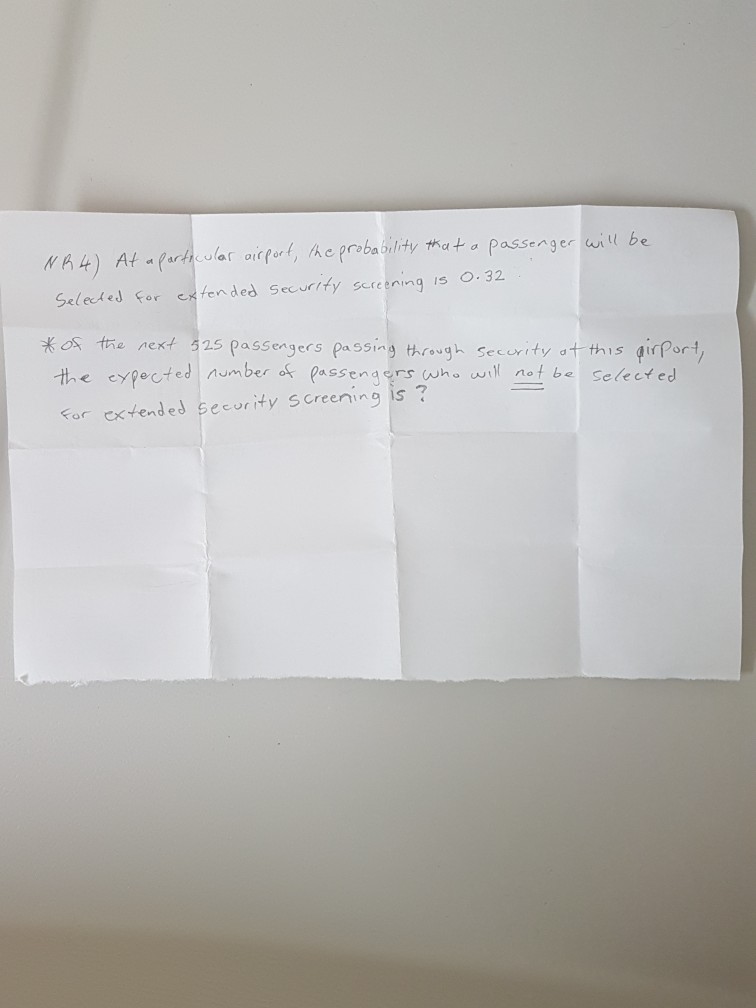 NR 4) At a particular airport, the probability that a passenger will be
Selected for extended security screening is 0.32
* of the next 525 passengers passing through security at this airport,
the expected number of passengers who will not be selected
for extended security screening is ?